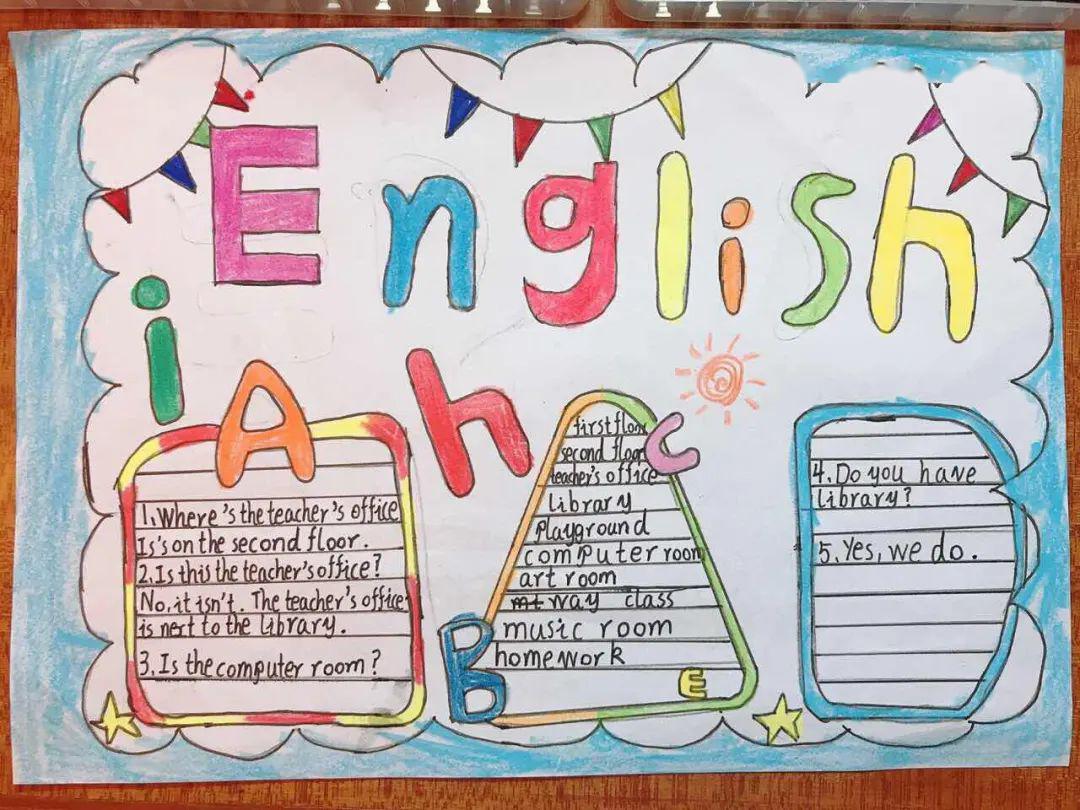 English
i
A
h
C
1.Where's the teacher's office
Is's on the second floor.
2.Is this the teacher's office?
No, it isn't. The teacher's office
is next to the library.
3.Is the computer room?
first floor
second floor
teacher's office
library
playground
computer room
art room
way class
music room
homework
B
E
4.Do you have
library?
5.Yes, we do.